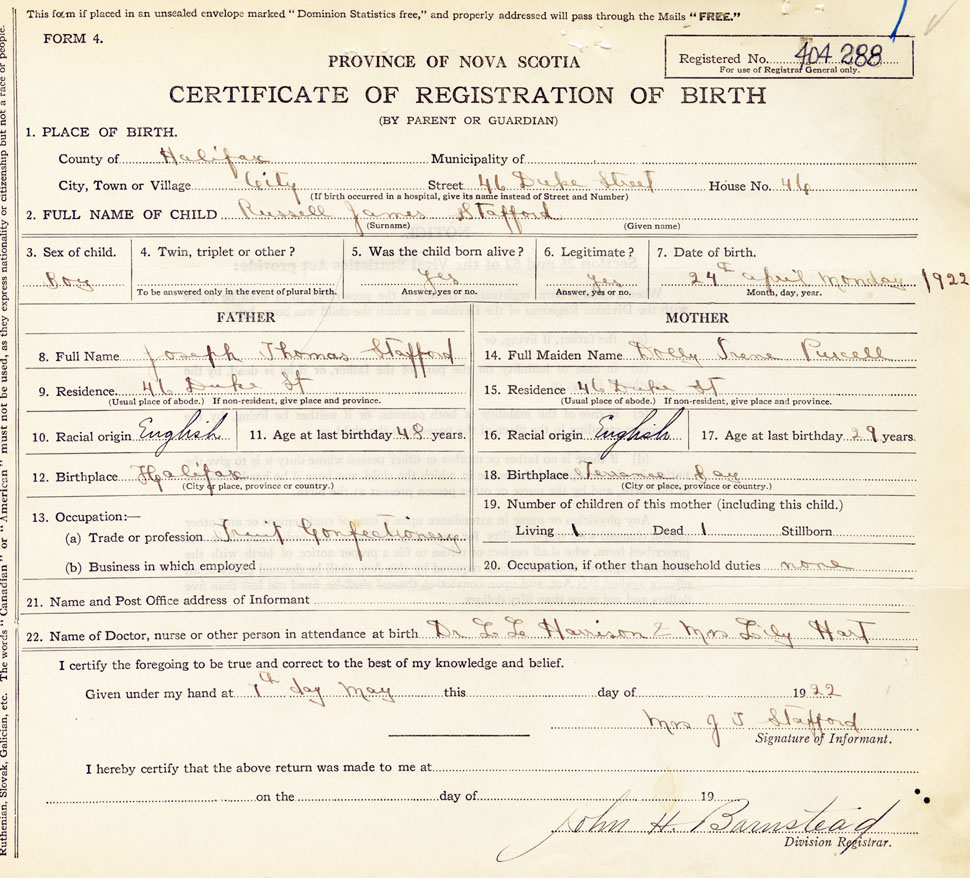 This form if placed in an unsealed envelope marked "Dominion Statistics free," and properly addressed will pass through the Mails "FREE."
FORM 4.
Registered No. 404 288
For use of Registrar General only.
PROVINCE OF NOVA SCOTIA
CERTIFICATE OF REGISTRATION OF BIRTH
(BY PARENT OR GUARDIAN)
1. PLACE OF BIRTH.
County of Halifax Municipality of
City, Town or Village City Street 46 Duke Street House No. 46
(If birth occurred in a hospital, give its name instead of Street and Number)
2. FULL NAME OF CHILD Russell James Stafford
(Surname) (Given name)
3. Sex of child. 4. Twin, triplet or other? 5. Was the child born alive? 6. Legitimate? 7. Date of birth.
Boy Yes Yes 24th April Monday 1922
To be answered only in the event of plural birth. Answer, yes or no. Answer, yes or no. Month, day, year.
FATHER MOTHER
8. Full Name Joseph Thomas Stafford 14. Full Maiden Name Dolly Irene Purcell
9. Residence 46 Duke St 15. Residence 46 Duke St
(Usual place of abode.) If non-resident, give place and province. (Usual place of abode.) If non-resident, give place and province.
10. Racial origin English 11. Age at last birthday 48 years. 16. Racial origin English 17. Age at last birthday 29 years.
12. Birthplace Halifax 18. Birthplace Terrance Bay
(City or place, province or country.) (City or place, province or country.)
19. Number of children of this mother (including this child.)
13. Occupation:—
(a) Trade or profession Fruit Confectionery Living 1 Dead 1 Stillborn
(b) Business in which employed 20. Occupation, if other than household duties none
21. Name and Post Office address of Informant
22. Name of Doctor, nurse or other person in attendance at birth Dr Harrison & Mrs Lily Hart
I certify the foregoing to be true and correct to the best of my knowledge and belief.
Given under my hand at 7th day May this day of 1922
Mrs J T Stafford
Signature of Informant.
I hereby certify that the above return was made to me at
on the day of 19
John H. Barnstead
Division Registrar.
Ruthenian, Slovak, Galician, etc. The words "Canadian" or "American" must not be used, as they express nationality or citizenship but not a race or people.